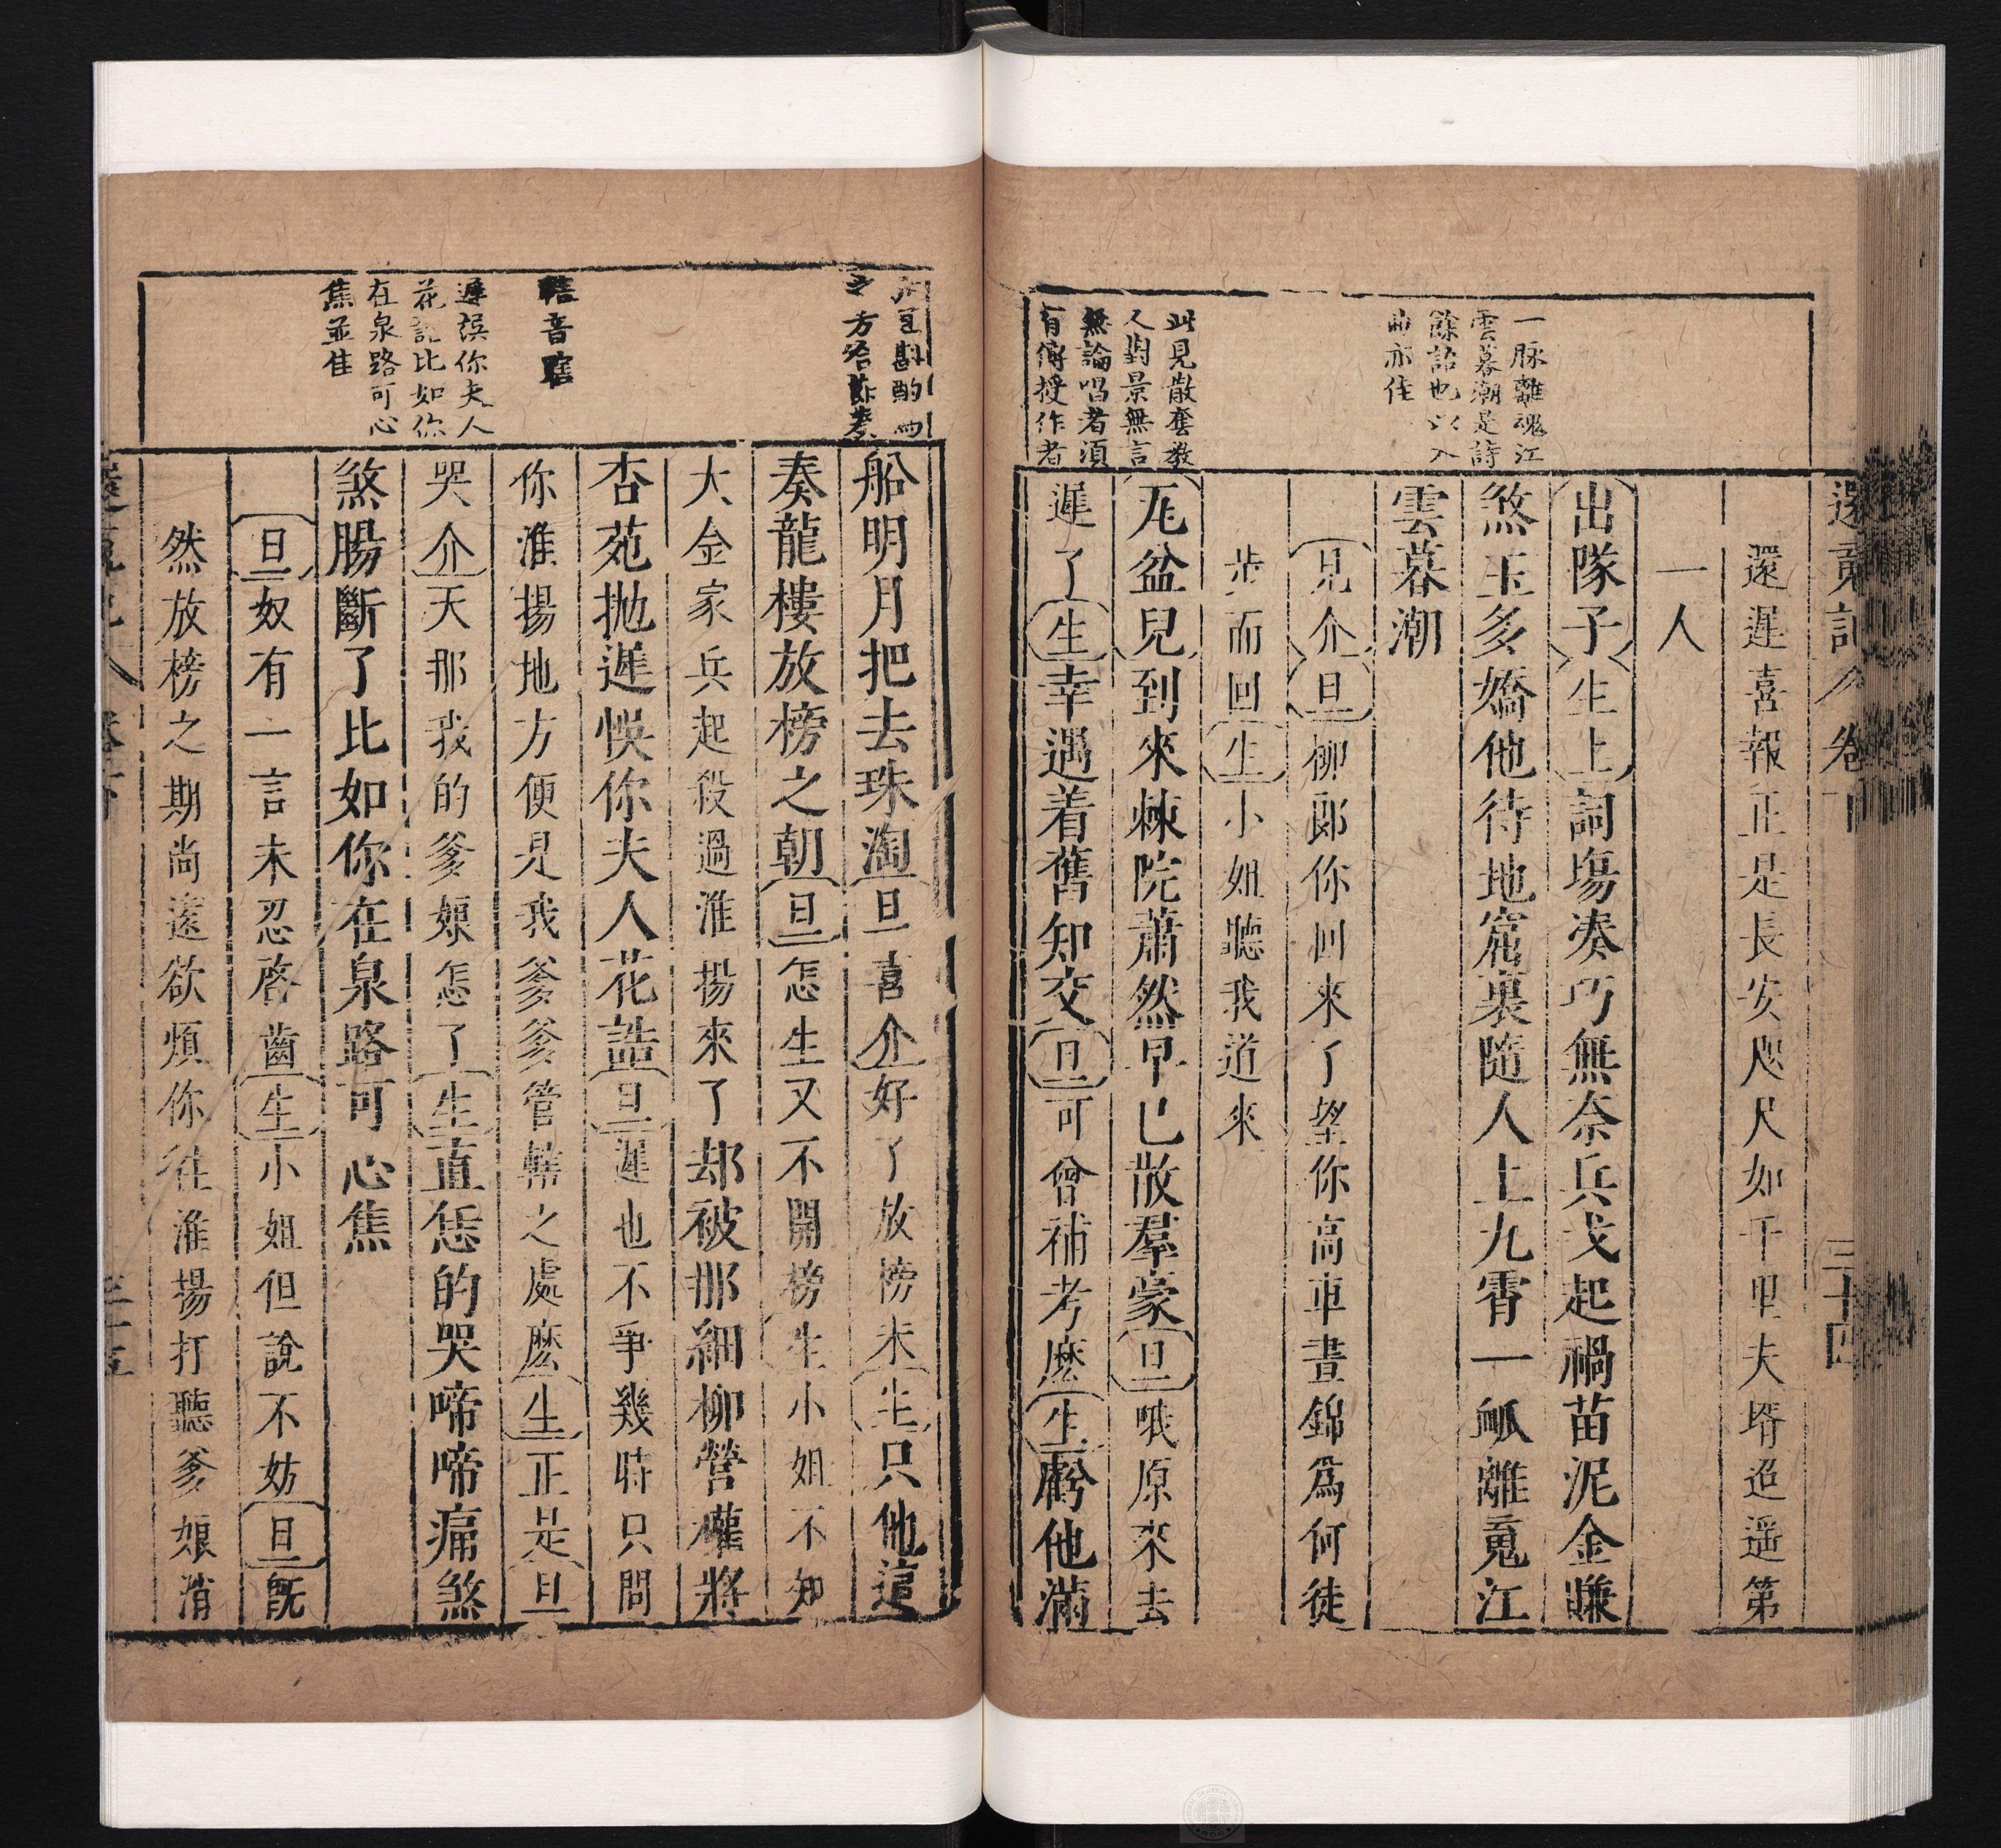 還魂記 卷下 三十四
還遲喜報正是長安咫尺如千里夫壻迢遥第
一人
出隊子生上詞塲湊巧無奈兵戈起禍苗泥金賺
煞玉多嬌他待地窟裏隨人上九霄一脉離䰟江
雲暮潮
見介旦柳郎你回來了望你高車晝錦爲何徒
步而回生小姐聽我道來
瓦盆兒到來棘院蕭然早已散羣豪旦哦原來去
遲了生幸遇着舊知交旦可曾補考麽生虧他滿
一脉離魂江
雲暮潮是詩
餘詁也以入
曲亦佳
此見散套教
人對景無言
無論唱者須
有傳授作者
船明月把去珠淘旦喜介好了放榜未生只他這
奏龍樓放榜之朝旦怎生又不開榜生小姐不知
大金家兵起殺過淮揚來了却被那細柳營權將
杏苑抛遲悮你夫人花誥旦遲也不爭幾時只問
你淮揚地方便是我爹爹管轄之處麽生正是旦
哭介天那我的爹娘怎了生直恁的哭啼啼痛煞
煞腸斷了比如你在泉路可心焦
旦奴有一言未忍啓齒生小姐但說不妨旦旣
然放榜之期尚遠欲煩你往淮揚打聽爹娘消
須斟酌
方合節奏
轄音瞎
遲悞你夫人
花誥比如你
在泉路可心
焦並佳
三十五